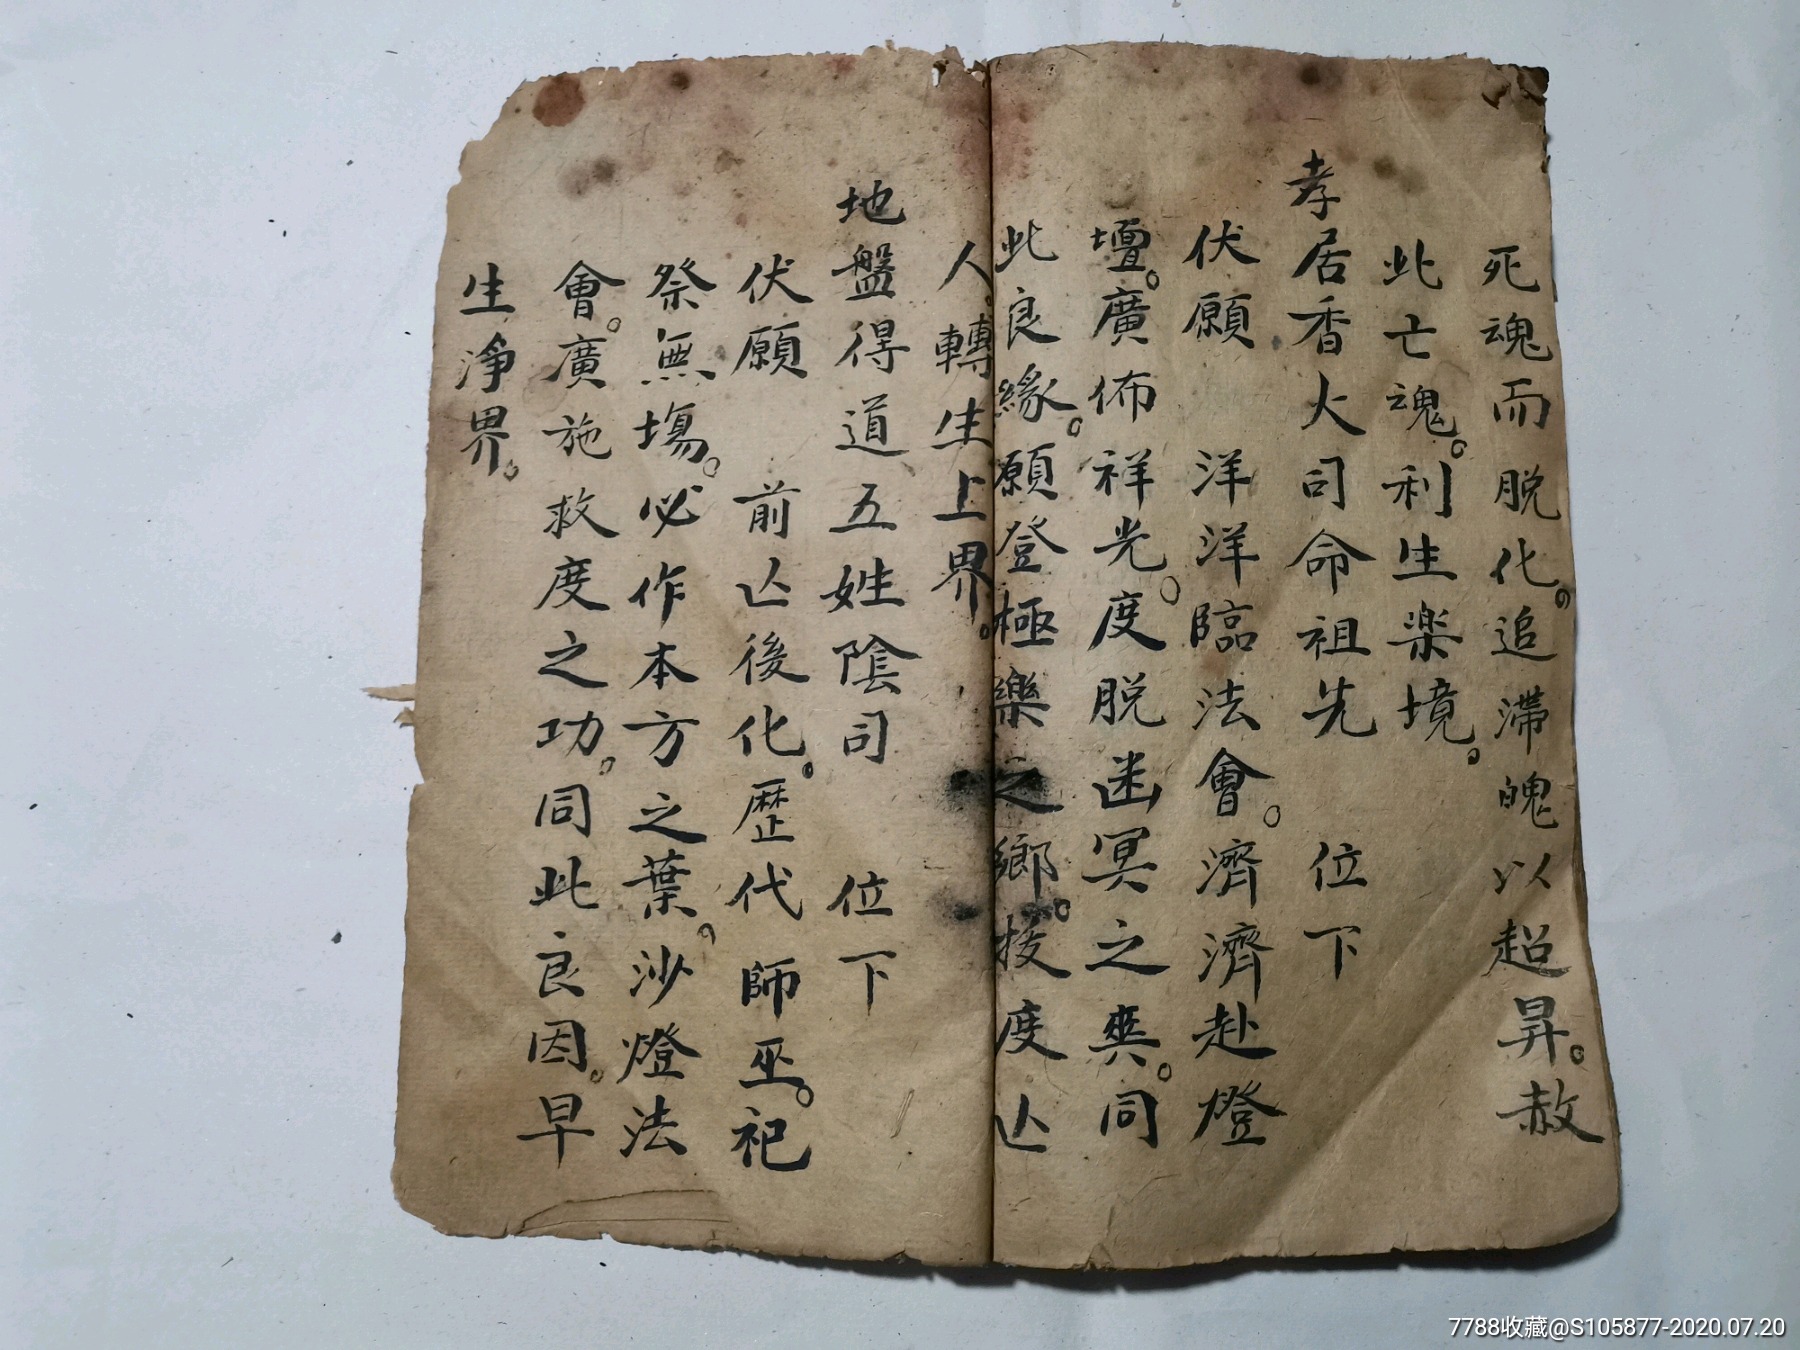 死魂而脱化。追滞魄以超昇。赦
此亡魂。利生楽境。
孝居香火司命祖先　位下
伏願　洋洋臨法會。濟濟赴燈
壇。廣佈祥光。度脱迷冥之爽。同
此良緣。願登極樂之鄉。拔度亾
人。轉生上界。
地盤得道五姓陰司　位下
伏願　前亾後化。歷代師巫。祀
祭無塲。必作本方之葉。沙燈法
會。廣施救度之功。同此良因。早
生淨界。
7788收藏@S105877-2020.07.20